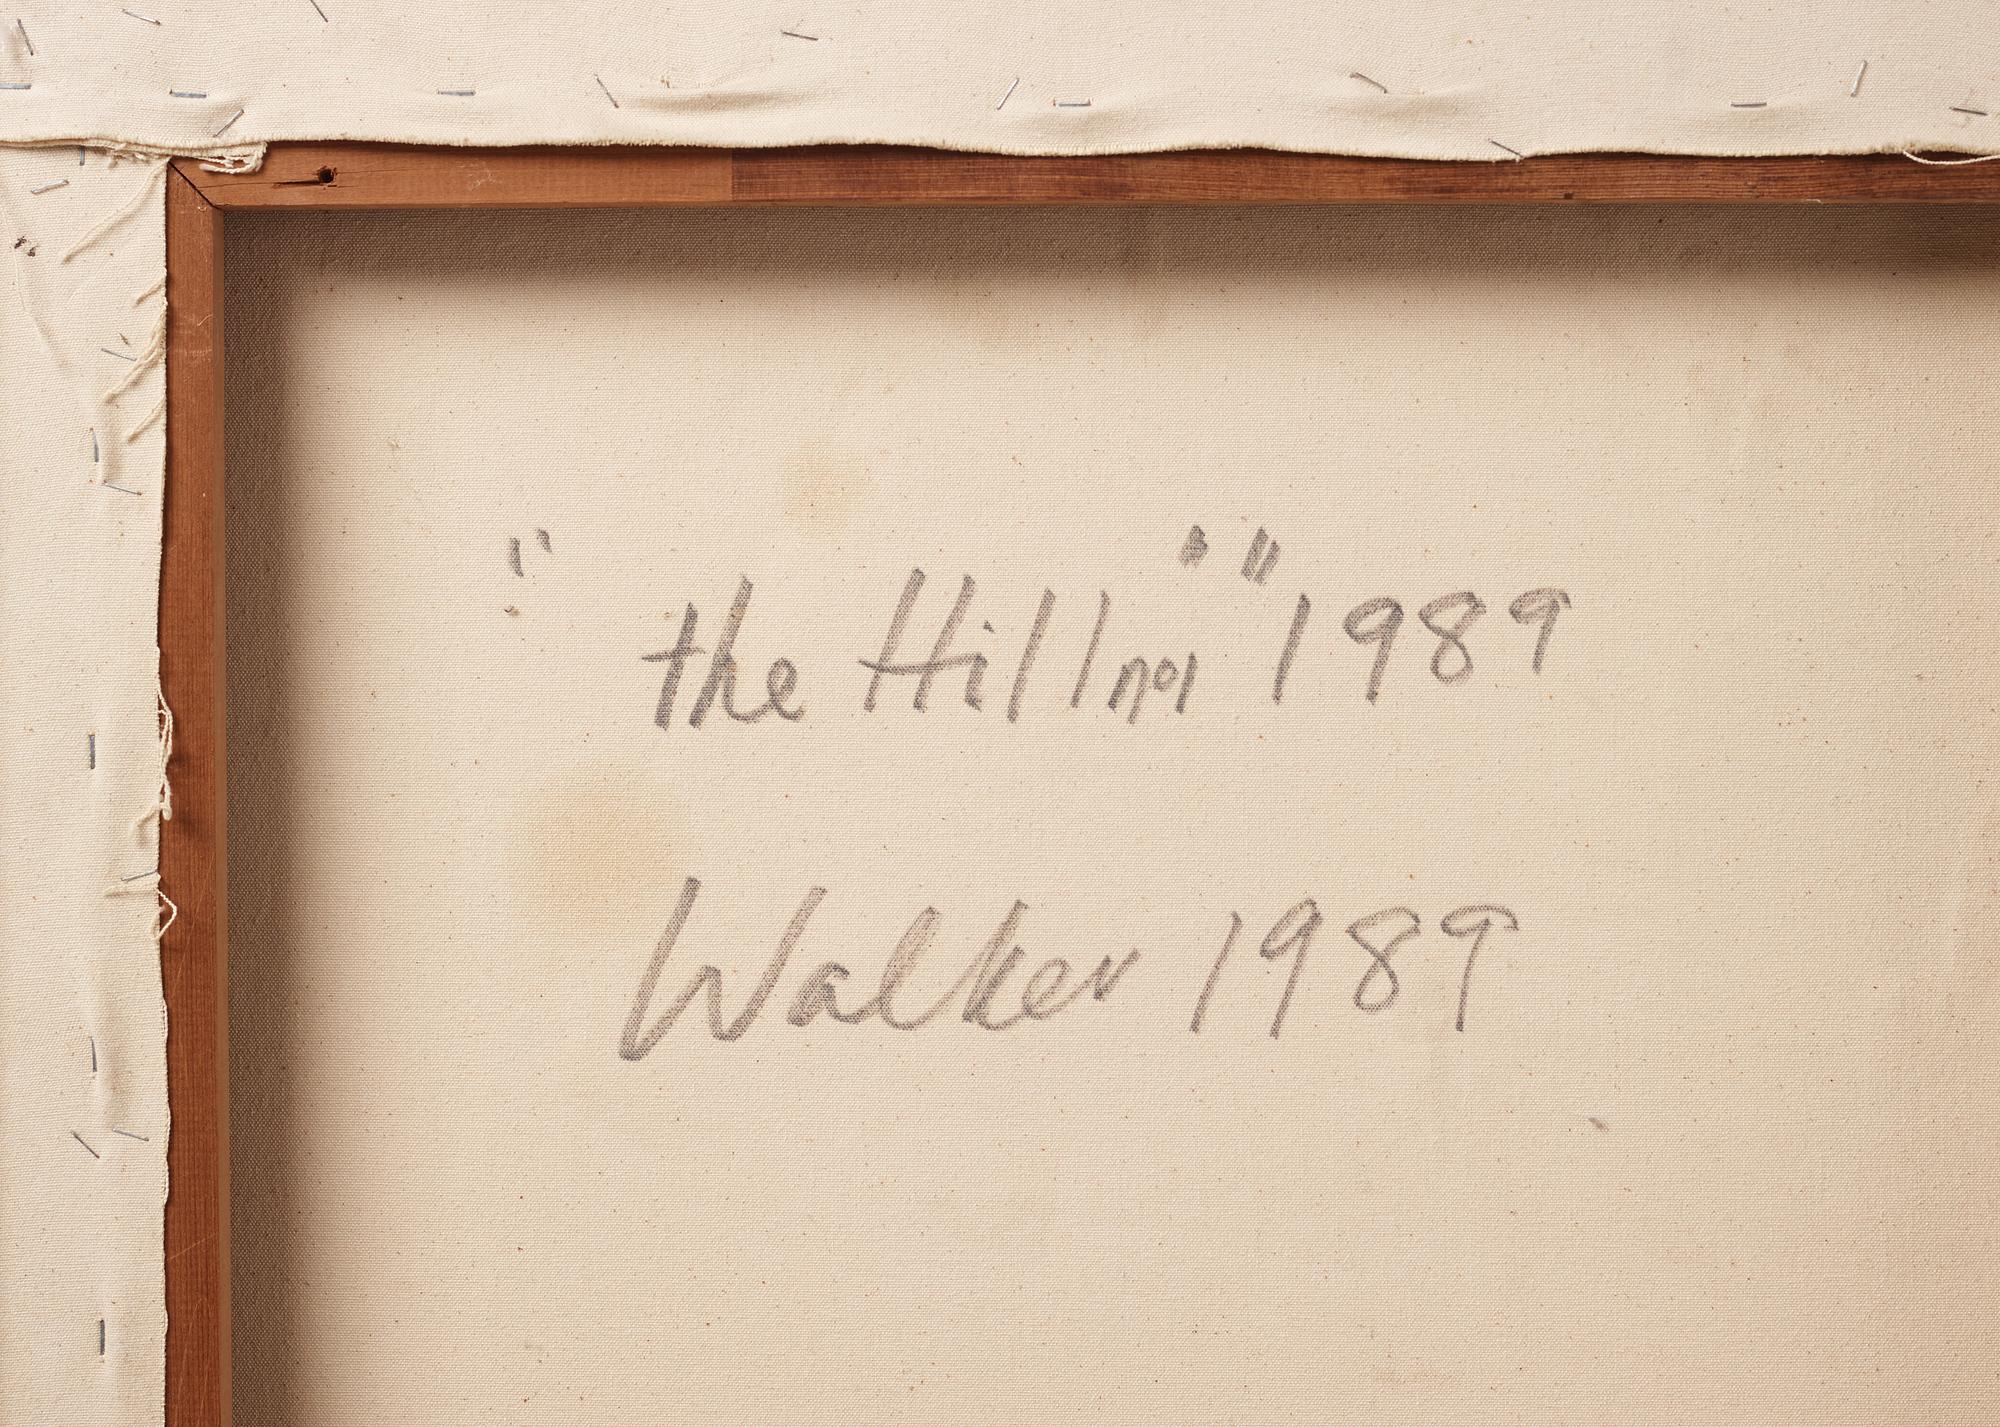 " the Hill no1 " " 1989
Walker 1989